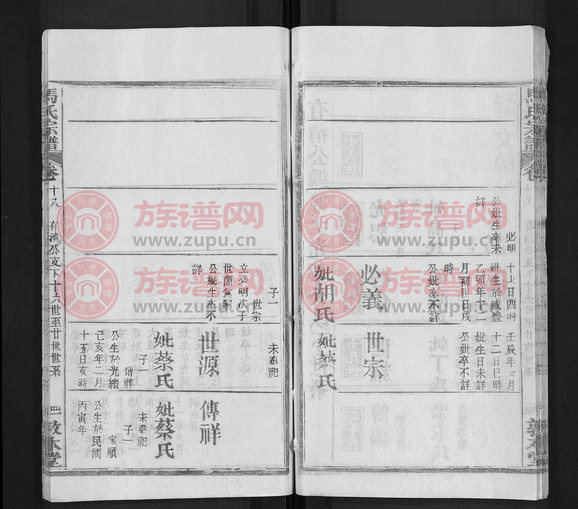 馬氏宗譜
必義
妣胡氏
世宗
妣蔡氏
必明
公妣生卒未
詳
十一日酉時
妣生於咸豐
乙卯年十二
月初四日戌
時
公妣卒不詳
壬辰年二月
十二日巳時
妣生日未詳
公妣卒不詳
子一
世宗
立必明次子
世源爲嗣
公妣生卒不
詳
未奉祀
世源
妣蔡氏
子一
傳祥
公生於光緒
己亥年二月
十五日亥時
傳祥
妣蔡氏
未奉祀
子一
家順
公生於民國
丙寅年
馬氏宗譜
卷
十八
世至廿世世系
敦本堂
族谱网
www.zupu.cn
族谱网
www.zupu.cn